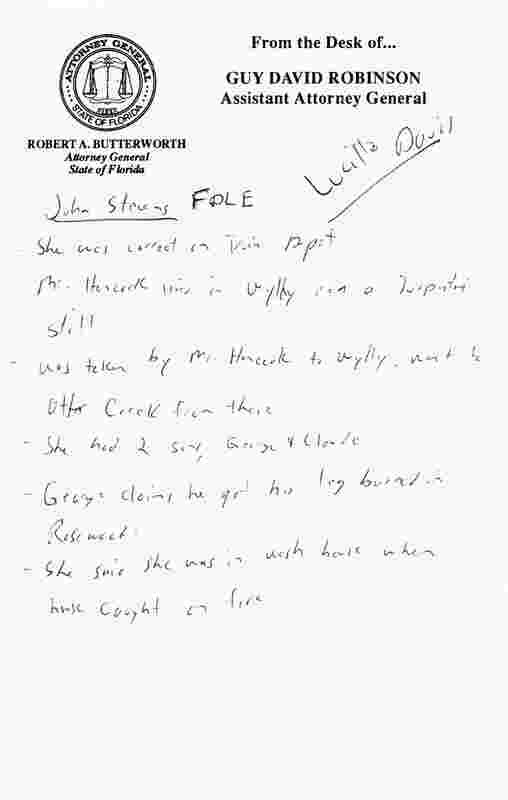 ATTORNEY GENERAL
STATE OF FLORIDA
From the Desk of...
GUY DAVID ROBINSON
Assistant Attorney General
ROBERT A. BUTTERWORTH
Attorney General
State of Florida
Davis
John Stevens FDLE
She was correct on Train Depot
Mr. Hancock was in Wylly ran a Turpentine
still
- was taken by Mr. Hancock to Wylly, went to
Otter Creek from there
- She had 2 sons, George & Clande
- George claims he got his leg burned in
Rosewood.
- She said she was in wash house when
house caught on fire